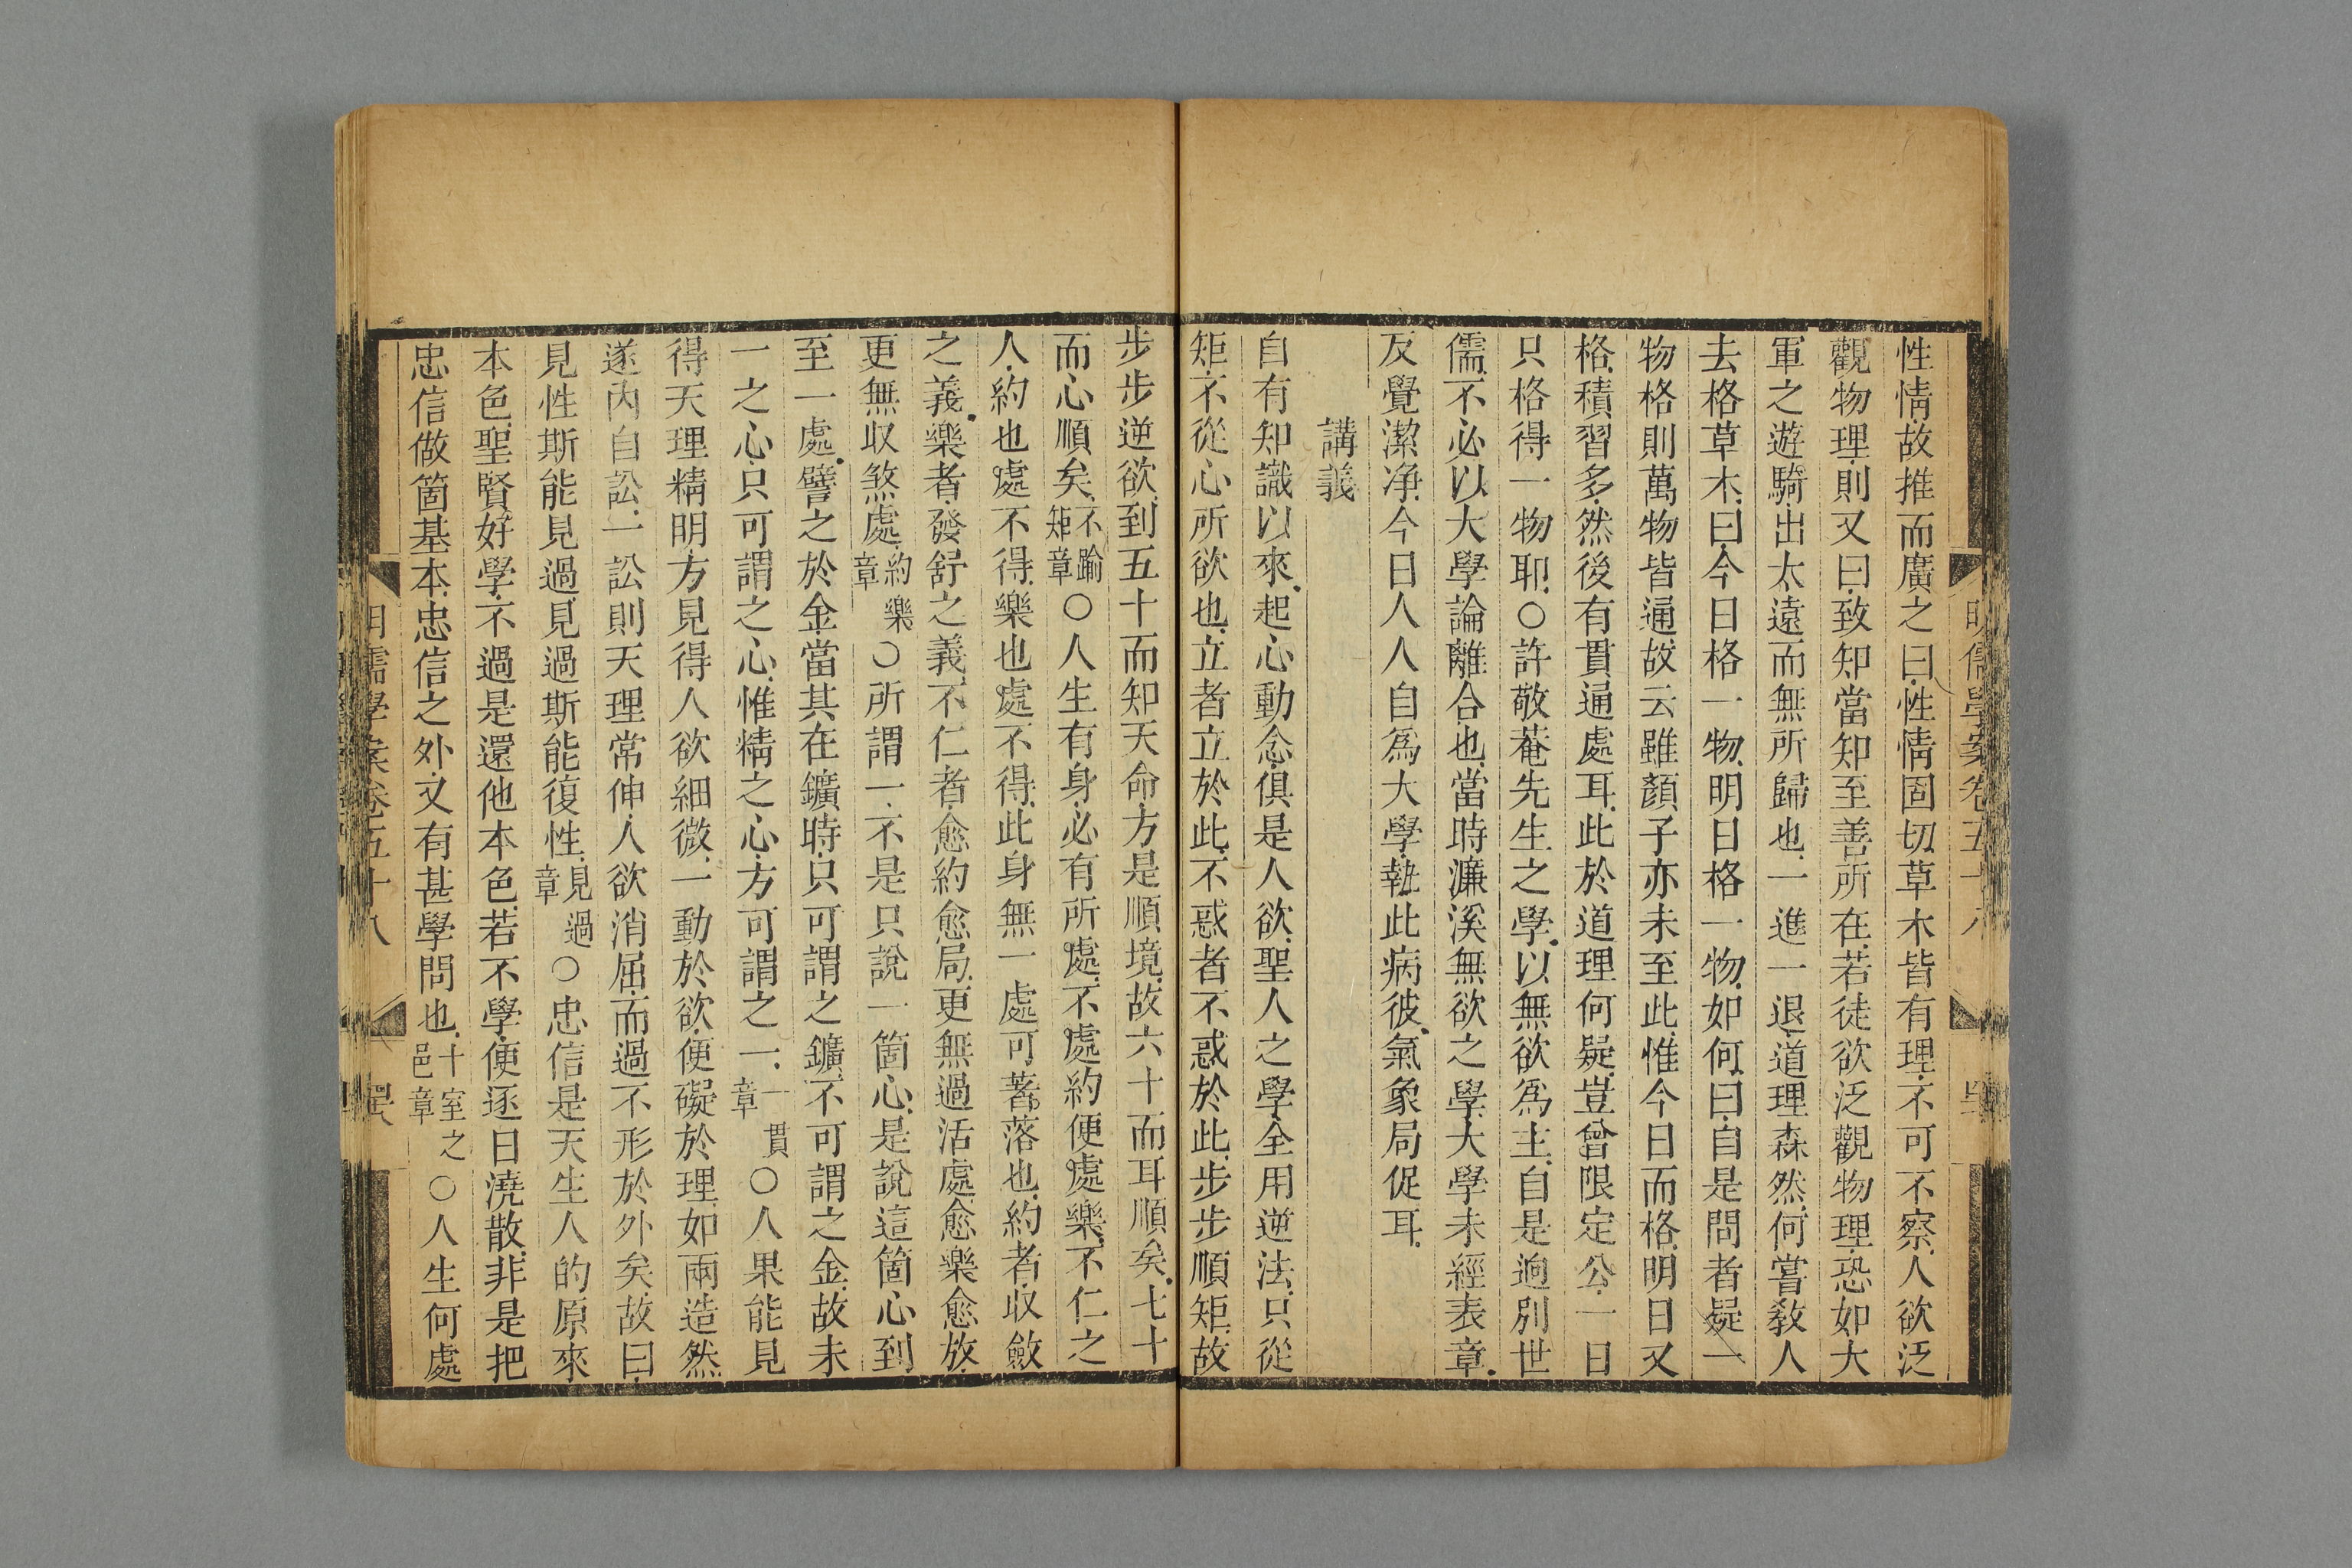 性情故推而廣之曰性情固切草木皆有理不可不察人欲泛
觀物理則又曰致知當知至善所在若徒欲泛觀物理恐如大
軍之遊騎出太遠而無所歸也一進一退道理森然何嘗敎人
去格草木曰今日格一物明日格一物如何曰自是問者疑一
物格則萬物皆通故云雖顏子亦未至此惟今日而格明日又
格積習多然後有貫通處耳此於道理何疑豈曾限定公一日
只格得一物耶○許敬菴先生之學以無欲爲主自是逈別世
儒不必以大學論離合也當時濂溪無欲之學大學未經表章
反覺潔净今日人人自爲大學執此病彼氣象局促耳
講義
自有知識以來起心動念俱是人欲聖人之學全用逆法只從
矩不從心所欲也立者立於此不惑者不惑於此步步順矩故
步步逆欲到五十而知天命方是順境故六十而耳順矣七十
而心順矣不踰矩章○人生有身必有所處不處約便處樂不仁之
人約也處不得樂也處不得此身無一處可著落也約者收斂
之義樂者發舒之義不仁者愈約愈局更無過活處愈樂愈放
更無收煞處約樂章○所謂一不是只說一箇心是說這箇心到
至一處譬之於金當其在鑛時只可謂之鑛不可謂之金故未
一之心只可謂之心惟精之心方可謂之一一貫章○人果能見
得天理精明方見得人欲細微一動於欲便礙於理如兩造然
遂內自訟一訟則天理常伸人欲消屈而過不形於外矣故曰
見性斯能見過見過斯能復性見過章○忠信是天生人的原來
本色聖賢好學不過是還他本色若不學便逐日澆散非是把
忠信做箇基本忠信之外又有甚學問也十室之邑章○人生何處
明儒學案卷五十八
明儒學案卷五十八